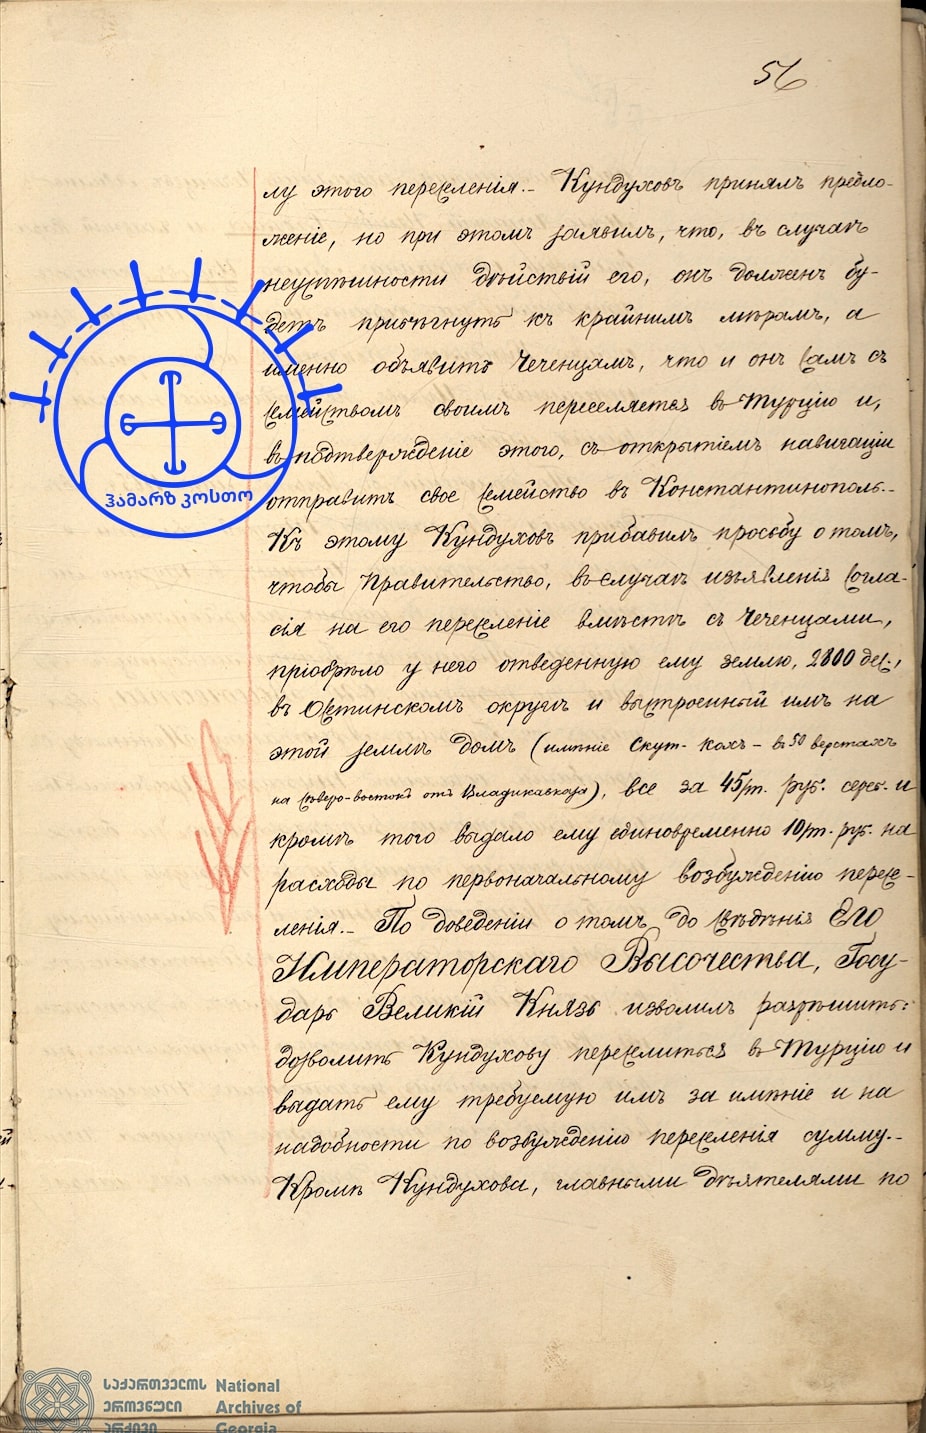 56
лу этого переселенія.- Кундуховъ принялъ предло-
женіе, но при этомъ заявилъ, что, въ случаѣ
неуспѣшности дѣйствій его, онъ долженъ бу-
детъ прибѣгнуть къ крайнимъ мѣрамъ, а
именно объявить Чеченцамъ, что и онъ самъ съ
семействомъ своимъ переселяется въ Турцію и,
въ подтвержденіе этого, съ открытіемъ навигаціи
отправитъ свое семейство въ Константинополь.-
Къ этому Кундуховъ прибавилъ просьбу о томъ,
чтобы Правительство, въ случаѣ изъявленія согла-
сія на его переселеніе вмѣстѣ съ Чеченцами,
пріобрѣло у него отведенную ему землю, 2800 дес.,
въ Осетинскомъ округѣ и выстроенный имъ на
этой землѣ домъ (имѣніе Скут-кохъ - въ 50 верстахъ
на сѣверо-востокъ отъ Владикавказа), все за 45/т. руб. сереб. и
кромѣ того выдало ему единовременно 10/т. руб. на
расходы по первоначальному возбужденію пересе-
ленія.- По доведеніи о томъ до свѣдѣнія Его
Императорскаго Высочества, Госу-
дарь Великій Князь изволилъ разрѣшить:
дозволить Кундухову переселиться въ Турцію и
выдать ему требуемую имъ за имѣніе и на
надобности по возбужденію переселенія сумму.-
Кромѣ Кундухова, главными дѣятелями по
ჰამარზ კოსთო
საქართველოს National
ეროვნული Archives of
არქივი Georgia